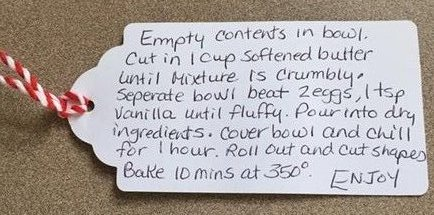 Empty contents in bowl.
Cut in 1 cup softened butter
until Mixture is crumbly.
Seperate bowl beat 2 eggs, 1 tsp
Vanilla until fluffy. Pour into dry
ingredients. Cover bowl and chill
for 1 hour. Roll out and cut shapes
Bake 10 mins at 350°.
ENJOY